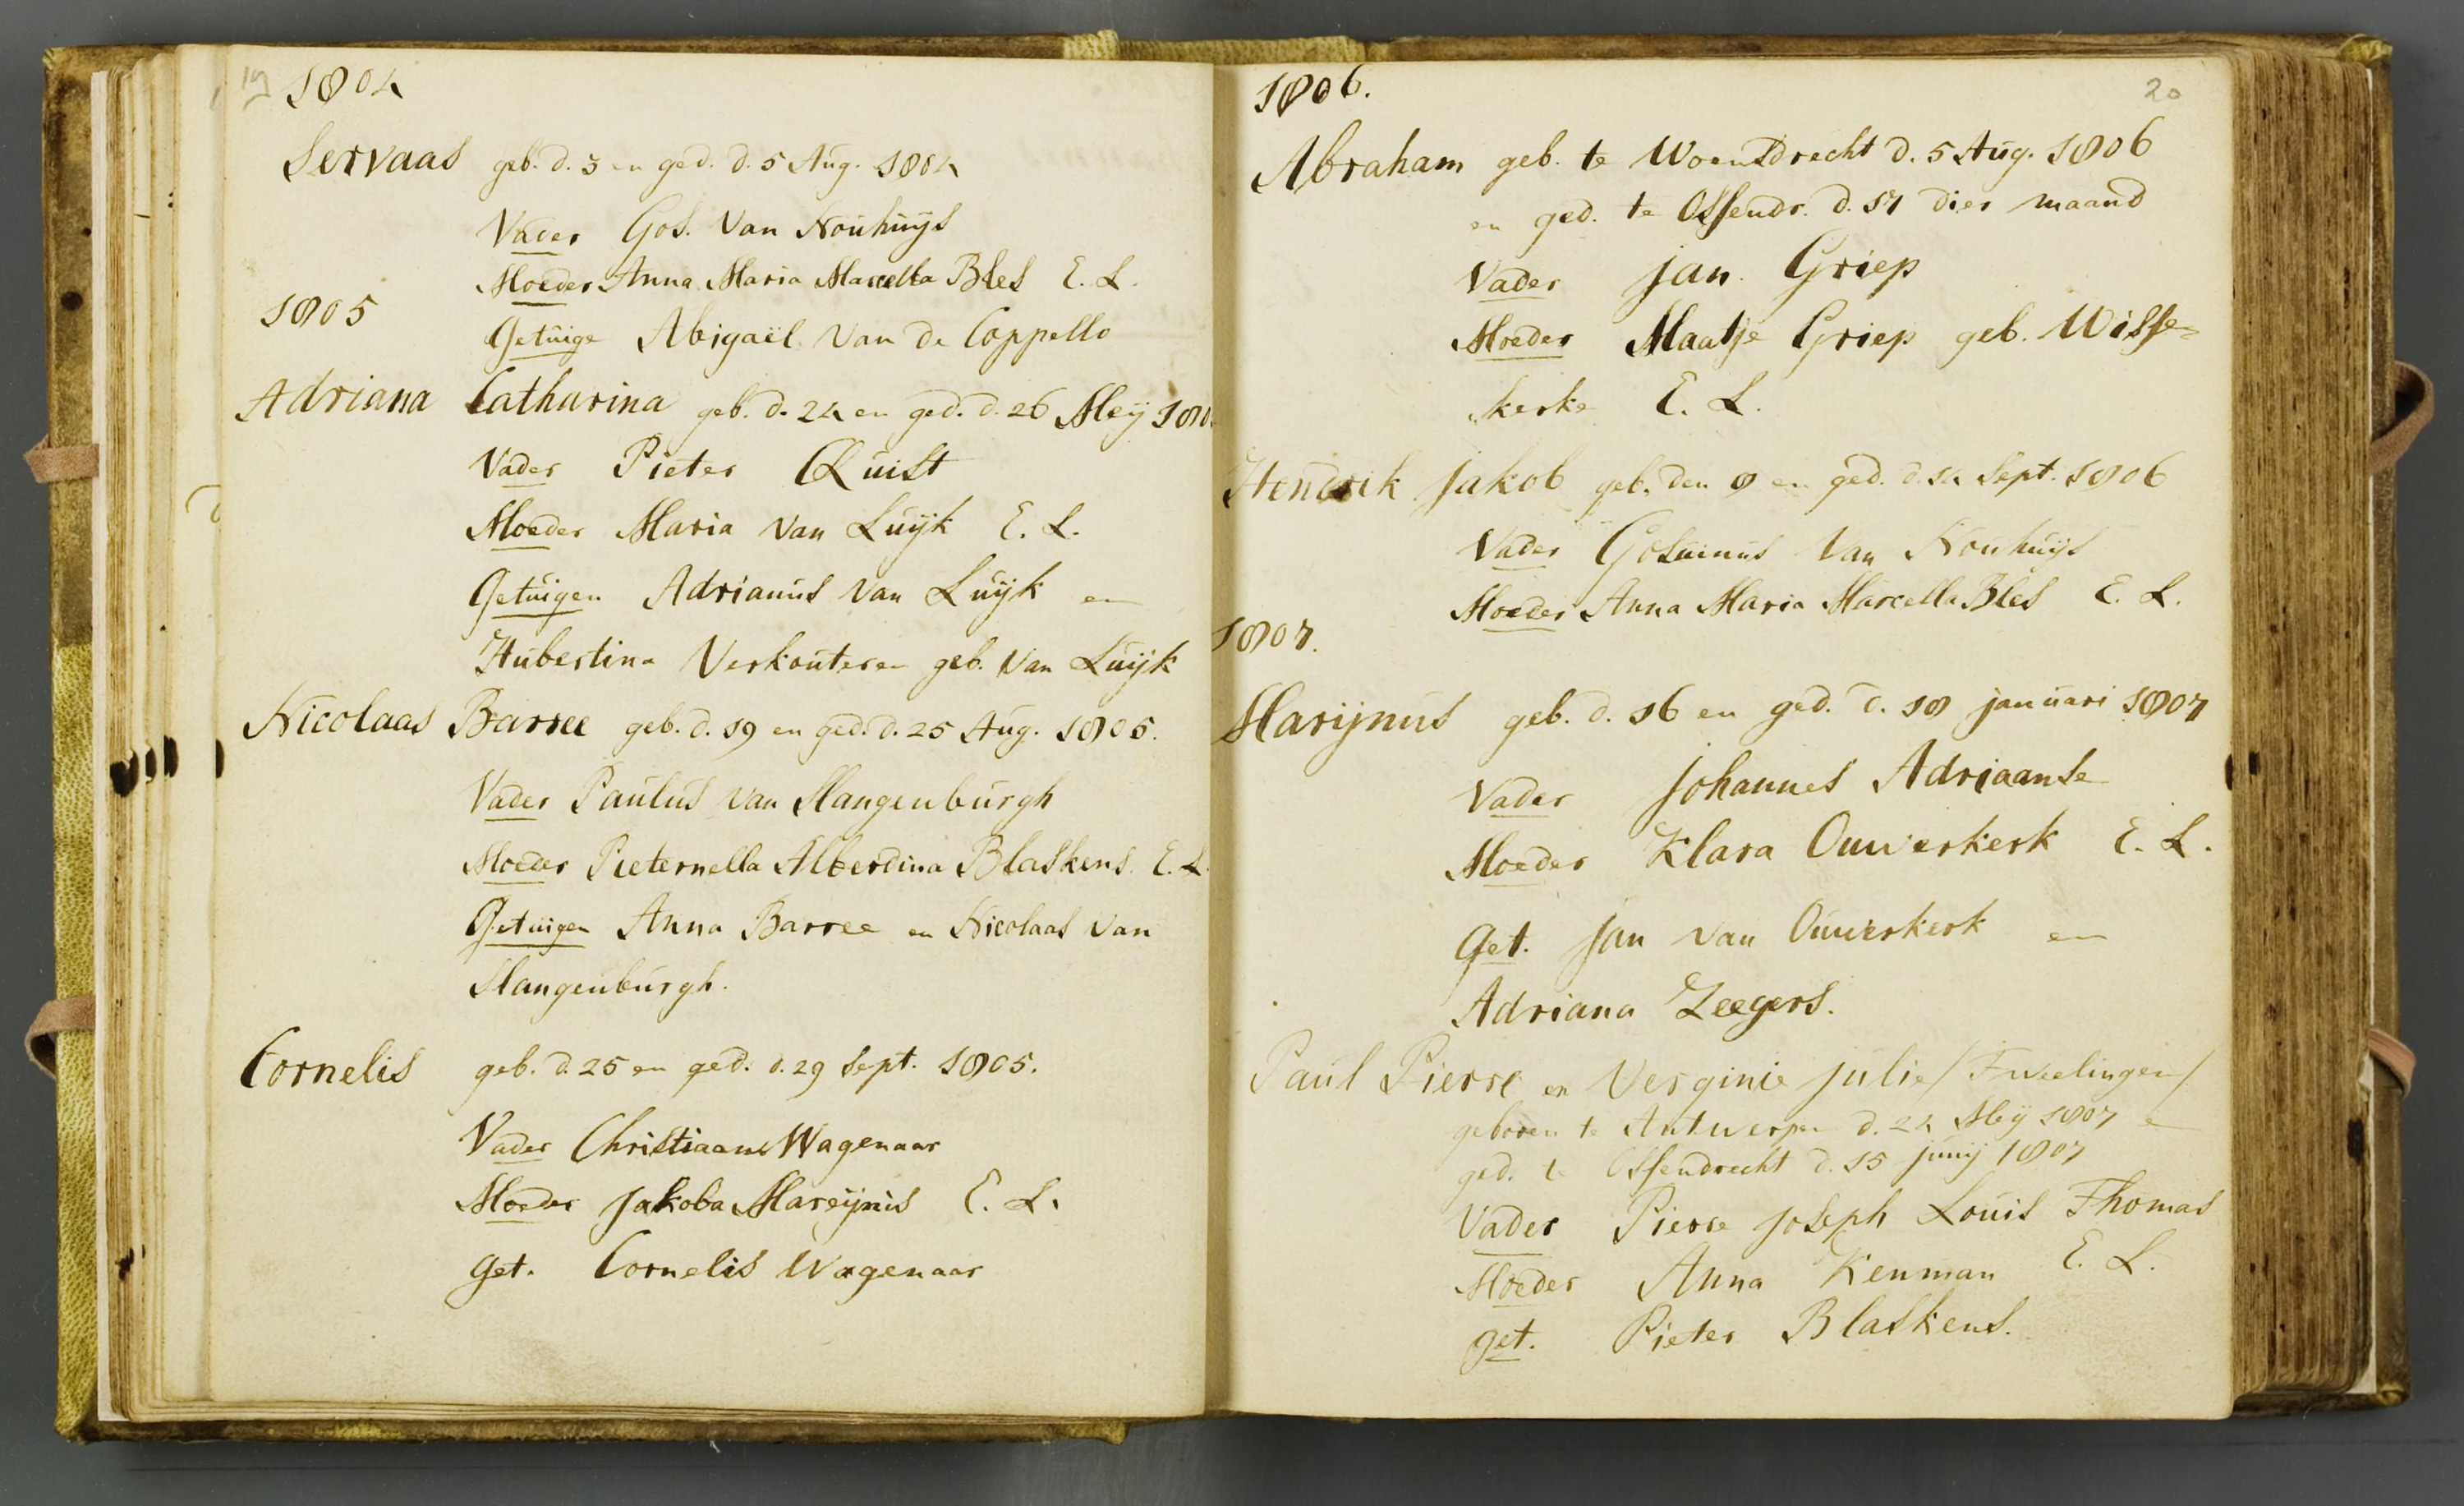 19
1804
Servaas geb. d. 3 en ged. d. 5 Aug. 1804
Vader Gos. van Nouhuijs
Moeder Anna Maria Marcella Bles E. L.
1805
Getuige Abigaël van de Coppello
Adriana Catharina geb. d. 24 en ged. d. 26 Meij 180
Vader Pieter Quist
Moeder Maria van Luijk E. L.
Getuigen Adrianus van Luijk en
Hubertina Verkouteren geb. van Luijk
Nicolaas Barree geb. d. 19 en ged. d. 25 Aug. 1805.
Vader Paulus van Slangenburgh
Moeder Pieternella Alberdina Blaskens. E. L.
Getuigen Anna Barree en Nicolaas van
Slangenburgh.
Cornelis geb. d. 25 en ged. d. 29 Sept. 1805.
Vader Christiaan Wagenaar
Moeder Jakoba Mareijnis E. L.
Get. Cornelis Wagenaar
20
1806.
Abraham geb. te Woensdrecht d. 5 Aug. 1806
en ged. te Ossendr. d. 17 dier maand
Vader Jan Griep
Moeder Maatje Griep geb. Wisse-
kerke E. L.
Hendrik Jakob geb. den 8 en ged. d. 14 Sept. 1806
Vader Gosuinus van Nouhuijs
Moeder Anna Maria Marcella Bles E. L.
1807.
Marijnus geb. d. 16 en ged. d. 18 januari 1807
Vader Johannes Adriaanse
Moeder Klara Ouwerkerk E. L.
Get. Jan van Ouwerkerk en
Adriana Zeegers.
Paul Pierre en Verginie Julie/Tweelingen/
geboren te Antwerpen d. 24 Meij 1807 en
ged. te Ossendrecht d. 15 junij 1807
Vader Pierre Joseph Louis Thomas
Moeder Anna Kenman E. L.
get. Pieter Blaskens.